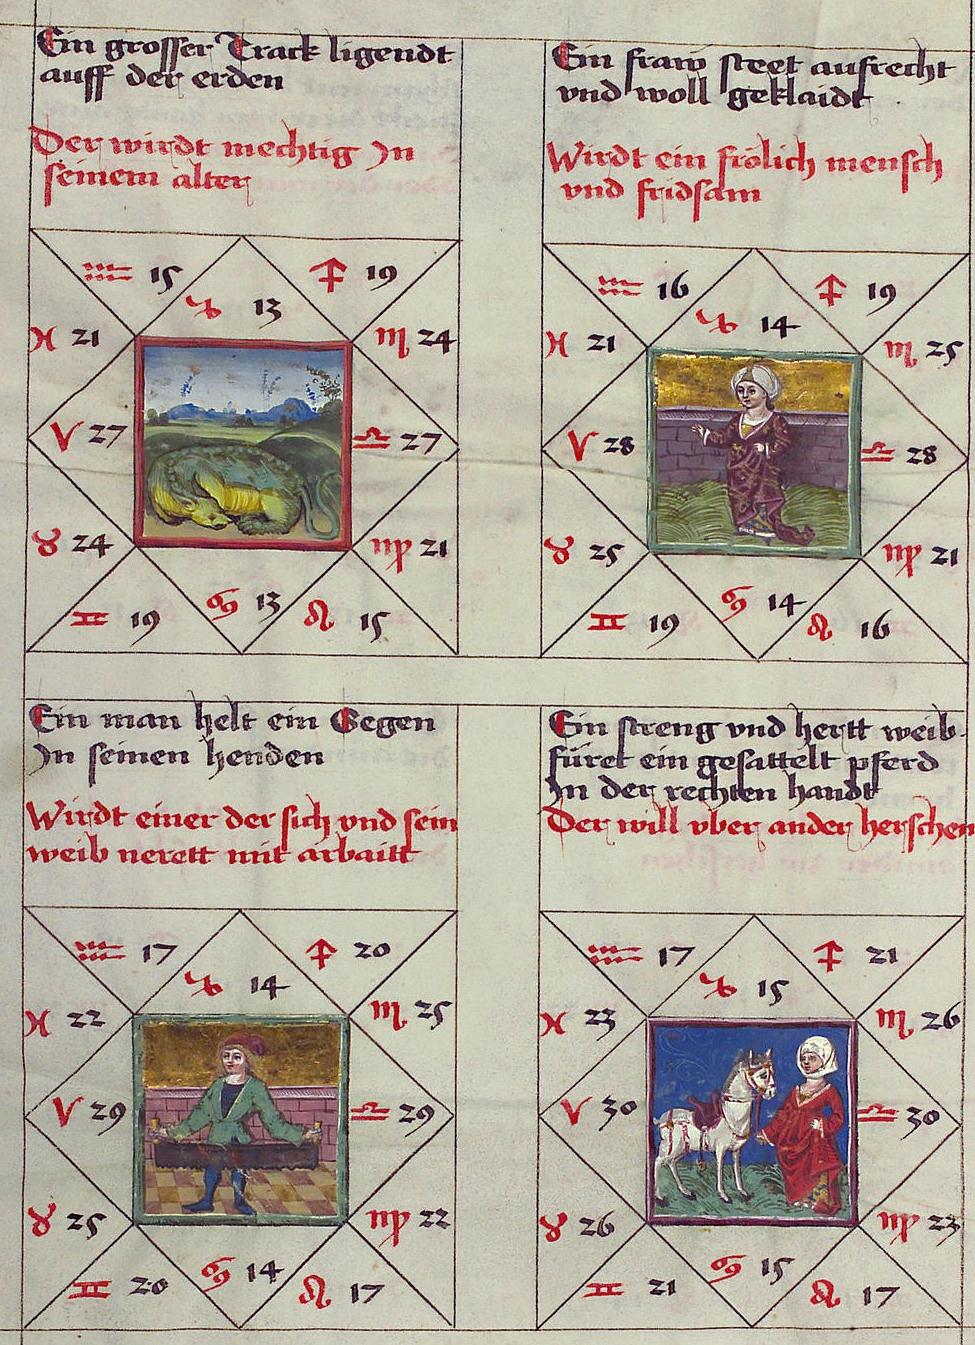 Ein grosser Track ligendt
auff der erden
Der wirdt mechtig Jn
seinem alter
♒ 15
♐ 19
♑ 13
♓ 21
♏ 24
♈ 27
♎ 27
♉ 24
♍ 21
♊ 19
♋ 13
♌ 15
Ein fraw steet aufrecht
vnd woll geklaidt
Wirdt ein frölich mensch
vnd fridsam
♒ 16
♐ 19
♑ 14
♓ 21
♏ 25
♈ 28
♎ 28
♉ 25
♍ 21
♊ 19
♋ 14
♌ 16
Ein man helt ein Segen
Jn seinen henden
Wirdt einer der sich vnd sein
weib nerett mit arbaitt
♒ 17
♐ 20
♑ 14
♓ 22
♏ 25
♈ 29
♎ 29
♉ 25
♍ 22
♊ 20
♋ 14
♌ 17
Ein streng vnd hertt weib
füret ein gesattelt pferd
Jn der rechten handt
Der will vber ander herschen
♒ 17
♐ 21
♑ 15
♓ 23
♏ 26
♈ 30
♎ 30
♉ 26
♍ 23
♊ 21
♋ 15
♌ 17